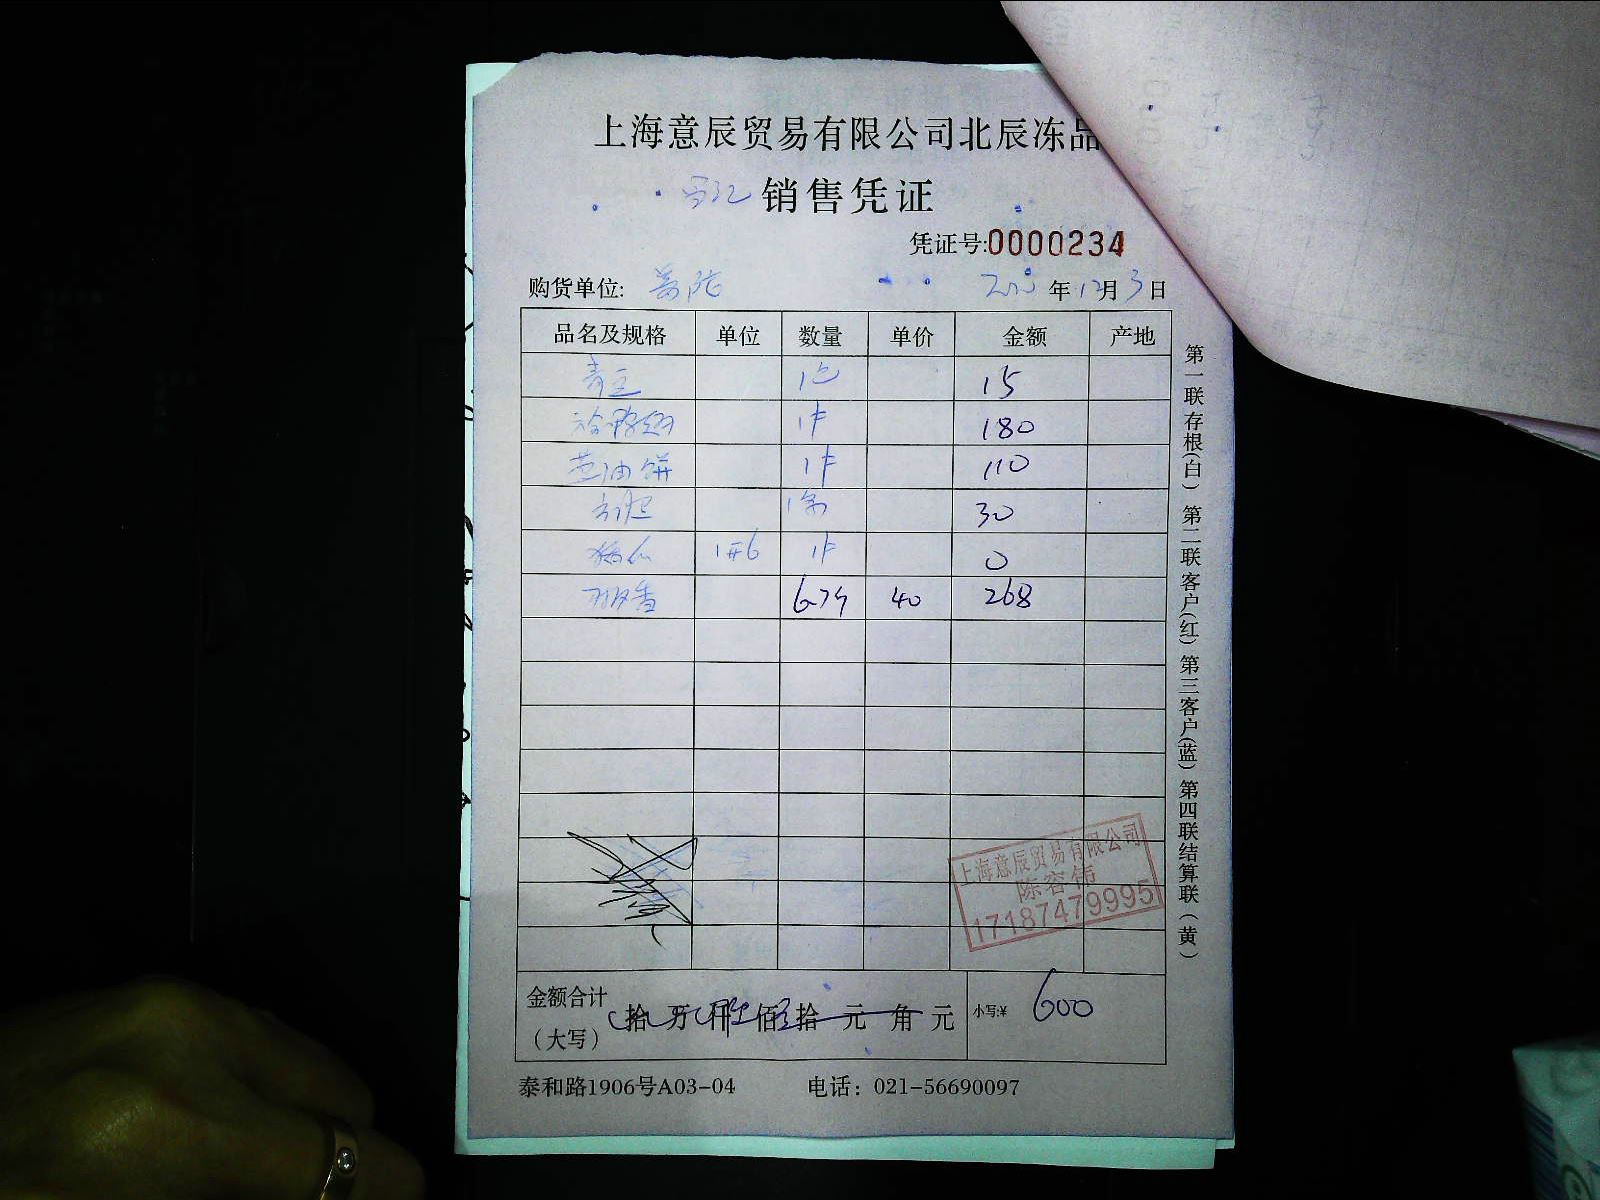 上海意辰贸易有限公司北辰冻品
销售凭证
凭证号:0000234
购货单位: 年12月3日
品名及规格 单位 数量 单价 金额 产地
青豆 1包 15
1件 180
葱油饼 1件 110
30
1件 0
40 268
金额合计 (大写) 拾 万 仟 佰 拾 元 角 元 小写:¥ 600
泰和路1906号A03-04 电话: 021-56690097
第一联存根(白) 第二联客户(红) 第三客户(蓝) 第四联结算联(黄)
上海意辰贸易有限公司
陈容伟
17187479995